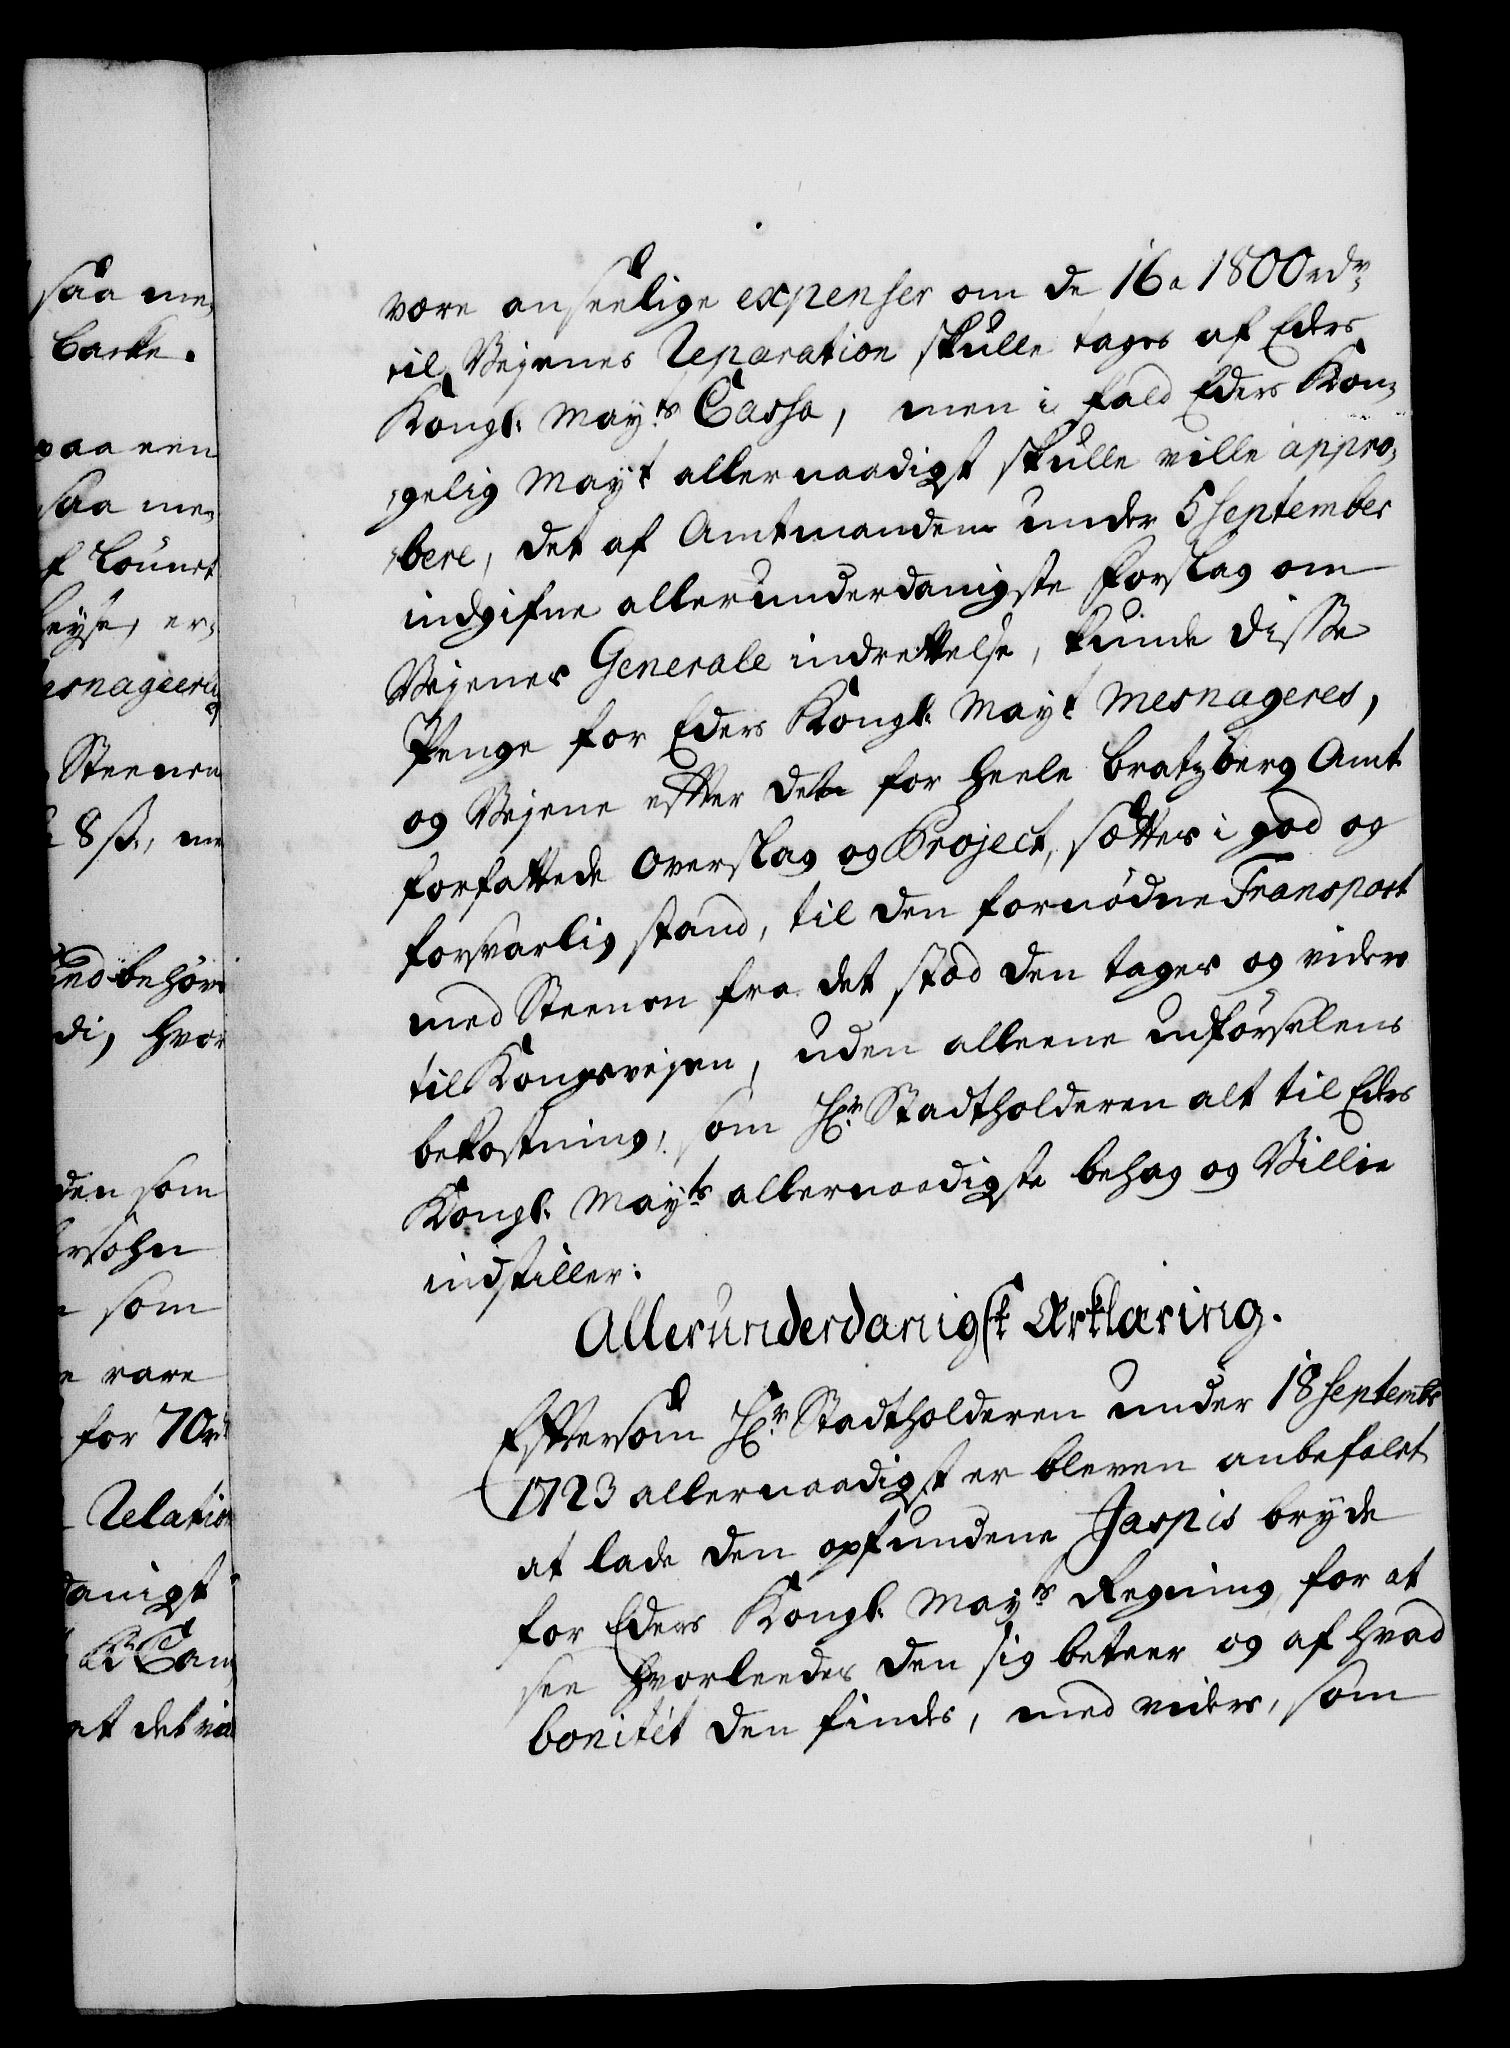 saa me„
barke.
paa een
saa me„
f Löunet
heyse, er„
esnageeri
Steenen
8 ß., me
behöri
di, hvor
den som
ersöhn
som
e vare
for 70 rd
Relation
danigst
Cam
at det via
være anseelige expenser om de 16 a 1800 rdr
til Vejenes Reparation skulle tages af Eders
Kongl: Mayts Cassa, men i fald Eders Kon„
„gelig Mayt allernaadigst skulle ville appro„
„bere, det af Amtmanden under 5 September
indgifne allerunderdanigste forslag om
Vejenes Generale indrettelse, kunde disse
Penge for Eders Kongl: Mayt mesnageres,
og Vejene efter det for heele Bratzberg Amt
forfattede overslag og Project, sættes i god og
forsvarlig stand, til den fornödne Transport
med Steenen fra det stæd den tages og videre
til Kongevejen, uden alleene udförselens
bekostning, som Hr. Stadtholderen alt til Eders
Kongl: Mayts allernaadigste behag og Villie
indstiller.
Allerunderdanigst Ærklæring.
Eftersom Hr. Stadtholderen under 18 Septembr
1723 allernaadigst er bleven anbefalet
at lade den opfundene Jaspis bryde
for Eders Kongl: Mayts Regning, for at
see hvorleedes den sig beteer og af hvad
bonitét den findes, med videre, som